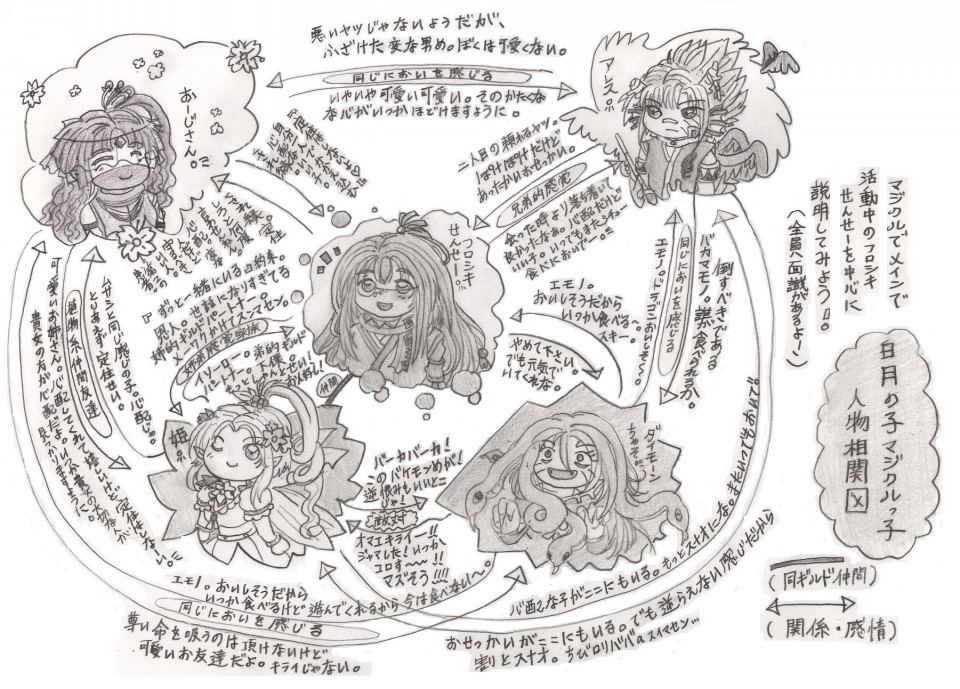 マジクルでメインで
活動中のフロシキ
せんせーを中心に
説明してみよう!!。
(全員へ面識があるよー)
日月の子マジクルっ子
人物相関図
(同ギルド仲間)
(関係・感情)
悪いヤツじゃないようだが、
ふざけた変な男め。ぼくは可愛くない。
同じにおいを感じる
いやいや可愛い可愛い。そのかたくな
な心がいつかほどけますように。
おーじさん。
アレス。
二人目の頼れるヤツ。
ぽけぽけだけど
あったかいおせっかい。
兄弟的感覚
会った時より落ち着いて
良かったなあ。心配だけど
いい子。いつでもまたシチュー
食べにおいでー。
フロシキ
せんせー
ずっと一緒にいる山約束。
恩人。世話になりすぎてる
姉的ギルドパートナー。
メイワクかけてスンマセン。
姉弟的感覚家族
イソーロー。弟的ギルド
パートナー。下僕。
もっとしゃんとせい!
がんばれ!
仲間
姫
エモノ。
おいしそうだから
いつか食べるー。
スキー。
やめて下さい。
でも元気で
いてくれな。
倒すべきである
バカマモノ。誰が食べられるか。
同じにおいを感じる
エモノ。ドラゴンおいしそー。
ダイモーン
ちゃん
バーカバーカ!
このバケモンめが!
逆恨みもいいとこ
じゃ!
敵対
オマエキライー!!
ジャマした!いつか
コロすー!!
マズそう!!!!
ムサシと同じ感じの子。心配じゃ。
とりあえず定住せい。
植物系仲間友達
可愛いお姉さん。心配してくれて嬉しいけど定住はしなーい。
貴女の方が心配だよ。
エモノ。おいしそうだから
いつか食べるけど遊んでくれるから今は食べない〜。
同じにおいを感じる
尊い命を吸うのは頂けないけど
可愛いお友達だよ。キライじゃない。
心配な子がここにもいる。もっとスナオにな。またいつでもおいで。
おせっかいがここにもいる。でも逆らえない感じだから
割とスナオ。ちびロリババaスイマセン…